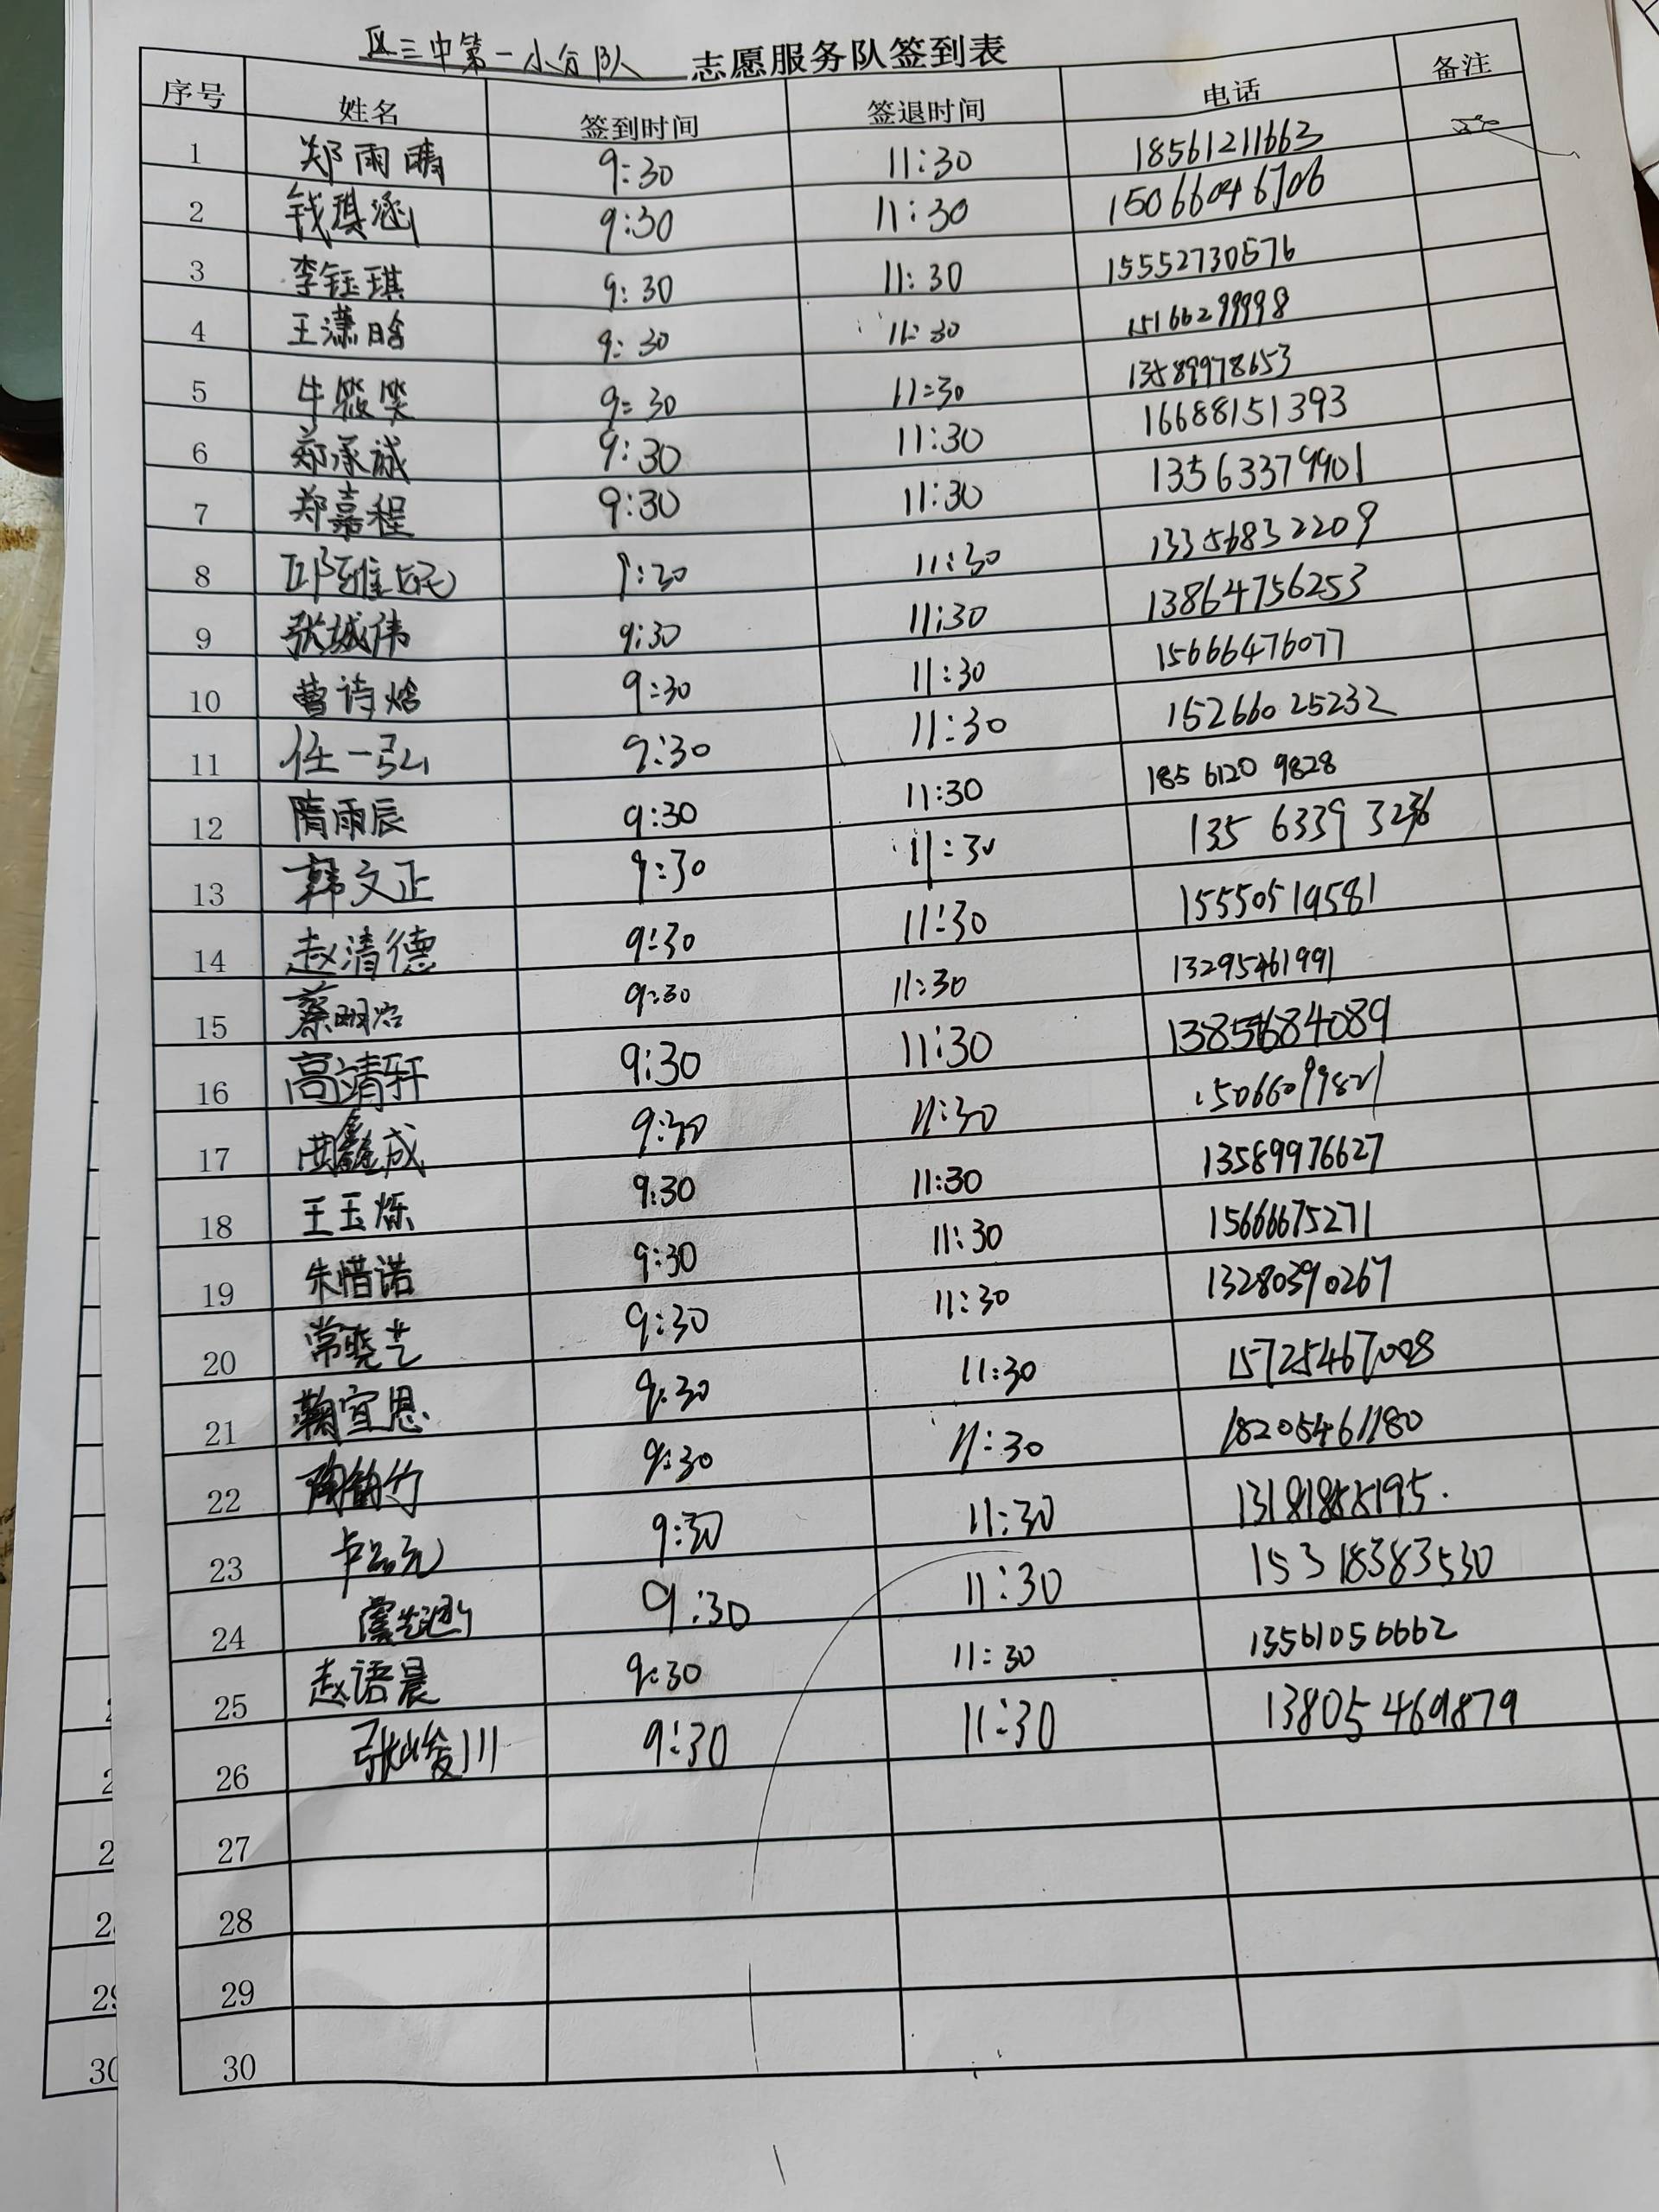 区三中第一小分队 志愿服务队签到表
序号 姓名 签到时间 签退时间 电话 备注
1 郑雨晴 9:30 11:30 18561211663
2 钱琪涵 9:30 11:30 15066046706
3 李钰琪 9:30 11:30 15552730576
4 王潇晗 9:30 11:30 15166299998
5 牛筱笑 9:30 11:30 13589978653
6 郑承诚 9:30 11:30 16688151393
7 郑嘉程 9:30 11:30 13563379901
8 9:30 11:30 13356832209
9 张诚伟 9:30 11:30 13864756253
10 曹诗焓 9:30 11:30 15666476077
11 任一弘 9:30 11:30 15266025232
12 隋雨辰 9:30 11:30 185 6120 9828
13 韩文正 9:30 11:30 135 6339 3236
14 赵清德 9:30 11:30 15550519581
15 蔡明治 9:30 11:30 13295461991
16 高靖轩 9:30 11:30 13854684089
17 曲鑫成 9:30 11:30 15066099821
18 王玉烁 9:30 11:30 13589976627
19 朱惜诺 9:30 11:30 15666675271
20 常晓艺 9:30 11:30 13280390267
21 鞠宜恩 9:30 11:30 15725467008
22 9:30 11:30 18205461180
23 9:30 11:30
24 9:30 11:30 15318383530
25 赵语晨 9:30 11:30 13561056662
26 张峻川 9:30 11:30 13805469879
27
28
29
30